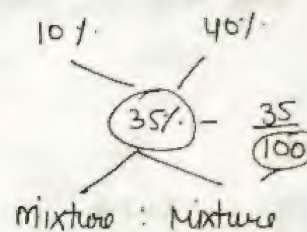 10% 40%
35% - 35
100
mixture : mixture